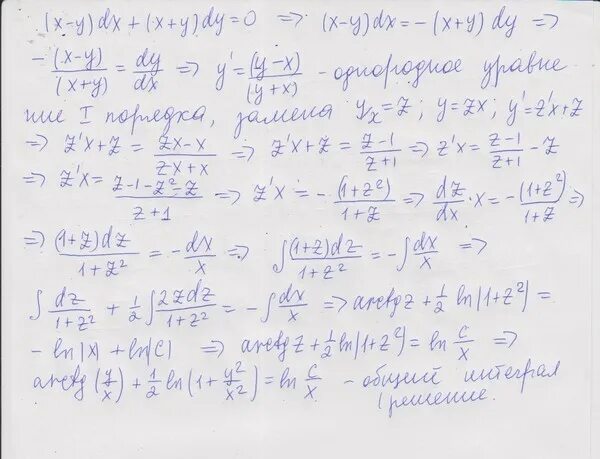 (x-y)dx + (x+y)dy=0 ⇒ (x-y)dx = -(x+y)dy ⇒
-(x-y)/(x+y) = dy/dx ⇒ y' = (y-x)/(y+x) - однородное уравне
ние I порядка, замена y/x = z; y=zx; y'=z'x+z
⇒ z'x+z = (zx-x)/(zx+x) ⇒ z'x+z = (z-1)/(z+1) ⇒ z'x = (z-1)/(z+1) - z
⇒ z'x = (z-1-z²-z)/(z+1) ⇒ z'x = -(1+z²)/(1+z) ⇒ dz/dx · x = -(1+z²)/(1+z) ⇒
⇒ (1+z)dz/(1+z²) = -dx/x ⇒ ∫(1+z)dz/(1+z²) = -∫dx/x ⇒
∫dz/(1+z²) + 1/2 ∫2zdz/(1+z²) = -∫dx/x ⇒ arctg z + 1/2 ln|1+z²| =
-ln|x| + ln|C| ⇒ arctg z + 1/2 ln|1+z²| = ln C/x ⇒
arctg(y/x) + 1/2 ln(1+y²/x²) = ln C/x - общий интеграл
решение.